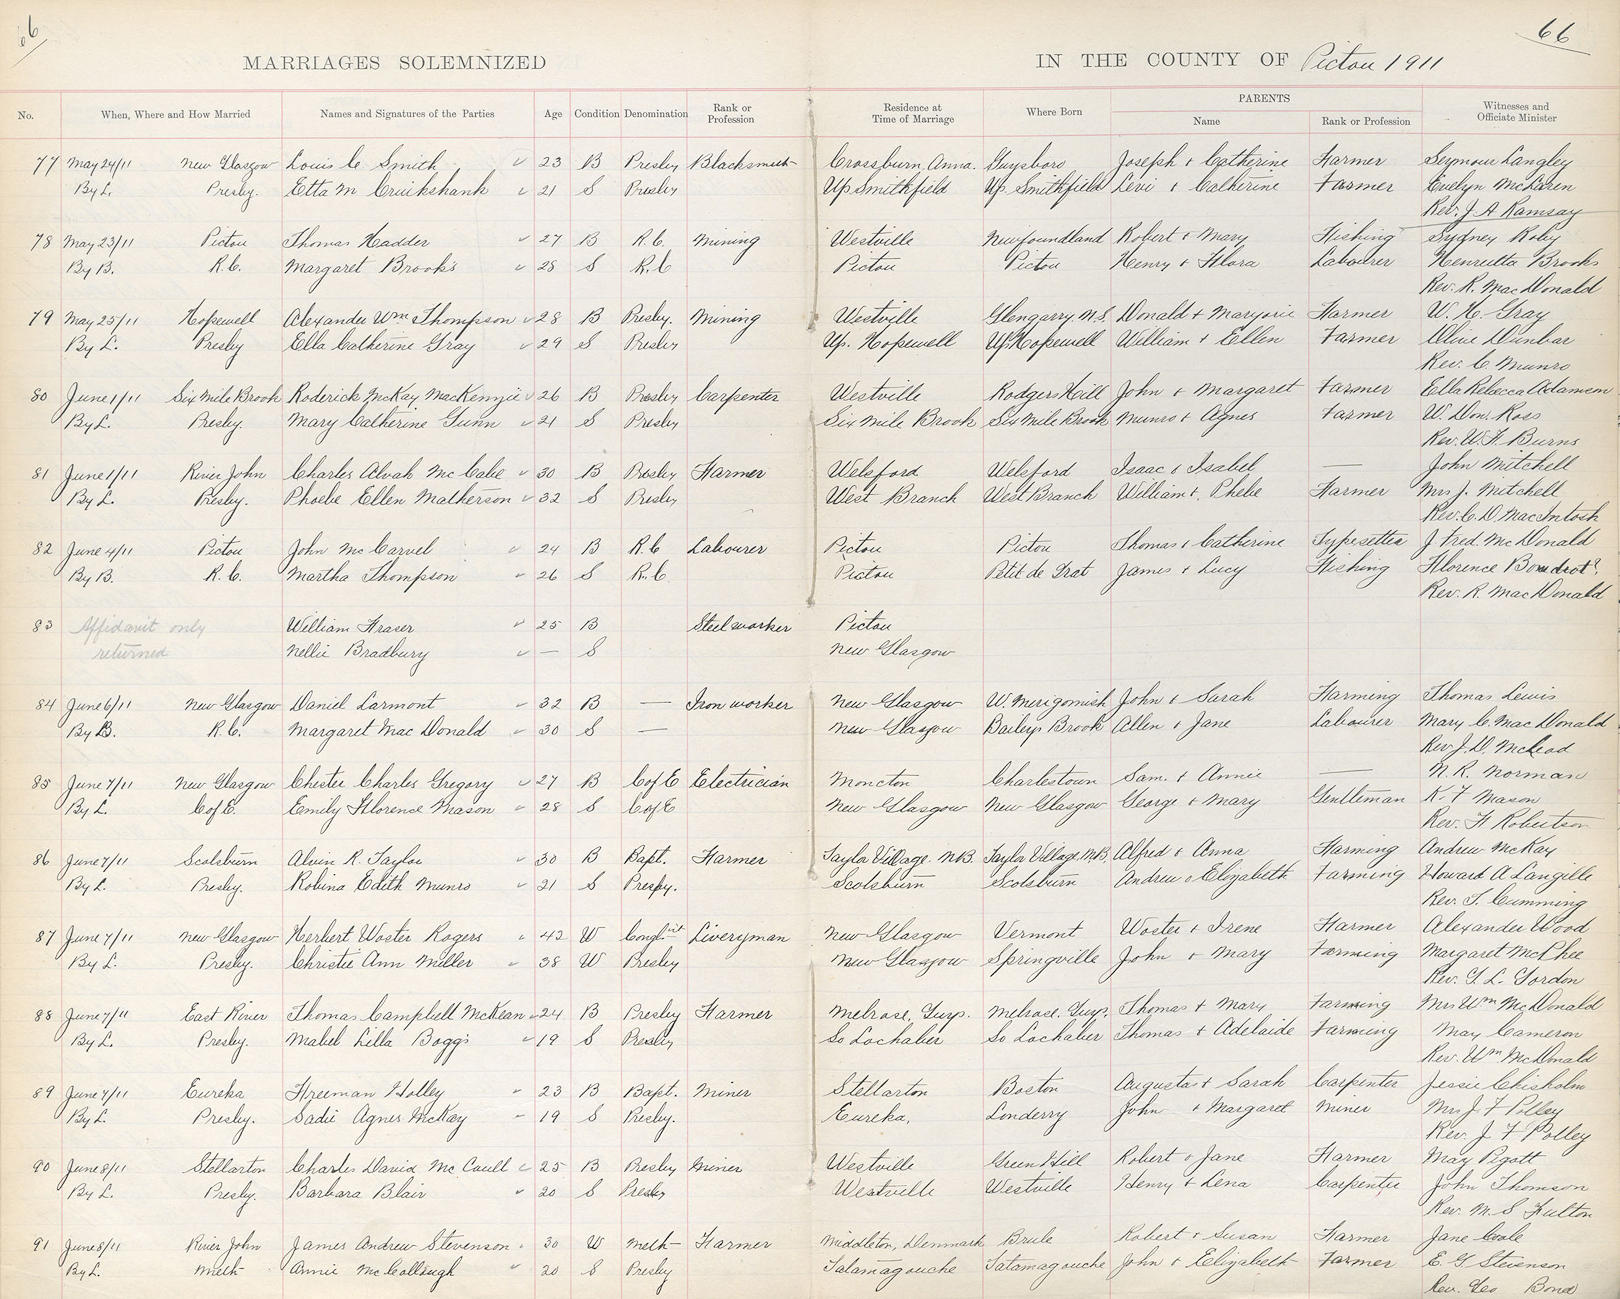 66
66
MARRIAGES SOLEMNIZED IN THE COUNTY OF Pictou 1911
No. When, Where and How Married Names and Signatures of the Parties Age Condition Denomination Rank or Profession Residence at Time of Marriage Where Born PARENTS Name Rank or Profession Witnesses and Officiate Minister
77 May 24/11 New Glasgow Louis C Smith 23 B Presby Blacksmith Crossburn Anna. Guysboro Joseph + Catherine Farmer Seymour Langley
By L. Presby. Etta M Cruikshank 21 S Presby Up Smithfield Up Smithfield Levi + Catherine Farmer Evelyn McLaren
Rev. J A Ramsay
78 May 23/11 Pictou Thomas Hadder 27 B R.C. Mining Westville Newfoundland Robert + Mary Fishing Sydney Roby
By B. R.C. Margaret Brooks 28 S R.C Pictou Pictou Henry + Flora Labourer Henrietta Brooks
Rev. R. MacDonald
79 May 25/11 Hopewell Alexander Wm Thompson 28 B Presby. Mining Westville Glengarry N.S. Donald + Marjorie Farmer W. H. Gray
By L. Presby Ella Catherine Gray 29 S Presby Up. Hopewell Up Hopewell William + Ellen Farmer Olive Dunbar
Rev. C Munro
80 June 1/11 Six Mile Brook Roderick McKay MacKenzie 26 B Presby Carpenter Westville Rodgers Hill John + Margaret Farmer Ella Rebecca Adamson
By L. Presby. Mary Catherine Gunn 21 S Presby Six Mile Brook Six Mile Brook Munro + Agnes Farmer W. Don. Ross
Rev. W. F. Burns
81 June 1/11 River John Charles Alvah McCabe 30 B Presby Farmer Welsford Welsford Isaac + Isabel — John Mitchell
By L. Presby. Phoebe Ellen Matherson 32 S Presby West Branch West Branch William +, Phebe Farmer Mrs J. Mitchell
Rev. C. D. MacIntosh
82 June 4/11 Pictou John McCarvel 24 B R.C Labourer Pictou Pictou Thomas + Catherine Typesetter J Fred. McDonald
By B. R.C. Martha Thompson 26 S R.C. Pictou Petit de Grat James + Lucy Fishing Florence Boudrot?
Rev. R. MacDonald
83 Affidavit only William Fraser 25 B Steel worker Pictou
returned Nellie Bradbury — S New Glasgow
84 June 6/11 New Glasgow Daniel Larmont 32 B — Iron worker New Glasgow W. Merigomish John + Sarah Farming Thomas Lewis
By B. R.C. Margaret MacDonald 30 S — New Glasgow Baileys Brook Allen + Jane Labourer Mary C. MacDonald
Rev J. D. McLeod
85 June 7/11 New Glasgow Chester Charles Gregory 27 B C of E Electrician Moncton Charlestown Sam. + Annie — N. R. Norman
By L. C of E. Emily Florence Mason 28 S C of E New Glasgow New Glasgow George + Mary Gentleman K. F Mason
Rev. H Robertson
86 June 7/11 Scotsburn Alvin R. Taylor 30 B Bapt. Farmer Taylor Village. N B. Taylor Village, N.B. Alfred + Anna Farming Andrew McKay
By L. Presby. Robina Edith Munro 21 S Presby. Scotsburn Scotsburn Andrew + Elizabeth Farming Howard A Langille
Rev. T. Cumming
87 June 7/11 New Glasgow Herbert Woster Rogers 42 W Congl'ist Liveryman New Glasgow Vermont Woster + Irene Farmer Alexander Wood
By L. Presby. Christie Ann Miller 38 W Presby New Glasgow Springville John + Mary Farming Margaret McPhee
Rev. G. L. Gordon
88 June 7/11 East River Thomas Campbell McKean 24 B Presby Farmer Melrose, Guys. Melrose, Guys. Thomas + Mary Farming Mrs Wm McDonald
By L. Presby. Mabel Lilla Boggs 19 S Presby So Lochaber So Lochaber Thomas + Adelaide Farming May Cameron
Rev. Wm McDonald
89 June 7/11 Eureka Freeman Holley 23 B Bapt. Miner Stellarton Boston Augusta + Sarah Carpenter Jessie Chisholm
By L. Presby. Sadie Agnes McKay 19 S Presby. Eureka, Londerry John + Margaret Miner Mrs J F Polley
Rev. J. F Polley
90 June 8/11 Stellarton Charles David McCaull 25 B Presby Miner Westville Green Hill Robert + Jane Farmer May Pigott
By L. Presby. Barbara Blair 20 S Presby Westville Westville Henry + Lena Carpenter John Thomson
Rev. M. S Fulton
91 June 8/11 River John James Andrew Stevenson 30 W Meth Farmer Middleton, Denmark Brule Robert + Susan Farmer Jane Cole
By L. Meth Annie McCollough 20 S Presby Tatamagouche Tatamagouche John + Elizabeth Farmer E. G Stevenson
Rev. Geo Bond